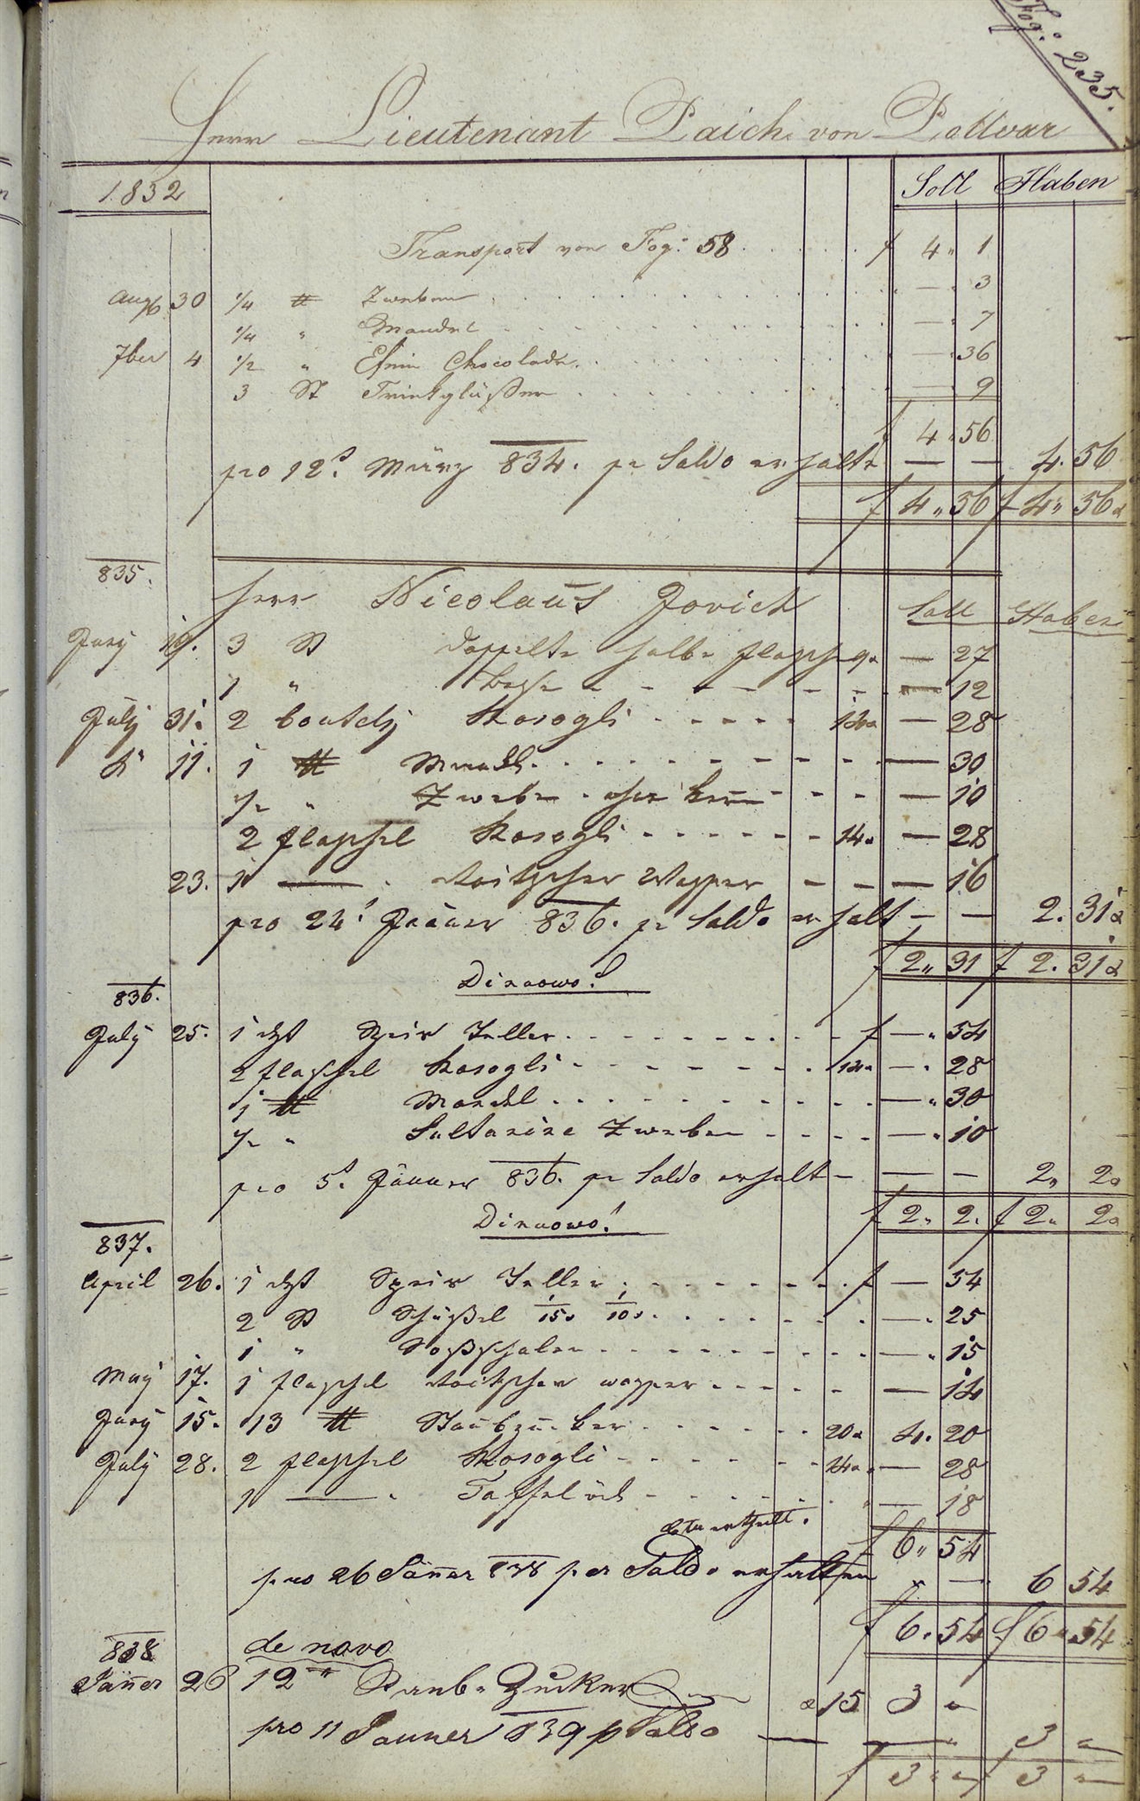 Fog: 235.
Herr Lieutenant Paich von Pottvar
1832 Soll Haben
Transport von Fog: 58 f 4 " 1
Aug 30 1/4 ℔ Zweben — 3
1/4 " Mandel — 7
7ber 4 1/2 " Chocolade — 36
3 St Trinkgläßer — 9
f 4 " 56
pro 12t März 834. pr Saldo erhalte — — 4. 56
f 4 " 56 f 4 " 56
835.
Herr Nicolaus Jovich Soll Haben
Juny 19. 3 St doppelte halbe 9 — 27
1 " — 12
July 31. 2 Boutelj Rosogli 14 — 28
do 11. 1 ℔ Mandl — 30
1/2 " Zweben — 10
2 flaschel Rosogli 14 — 28
23. 1 — — 16
pro 24t Jänner 836. pr Saldo erhalt — — 2. 31
f 2 " 31 f 2. 31
836. Dinnovo!
July 25. 1 dzt Speis Teller f — " 54
2 flaschel Rosogli 14 — . 28
1 ℔ Mandel — " 30
1/2 " Zweben — " 10
pro 5t Jänner 836. pr Saldo erhalt — — 2 " 2
f 2 " 2. f 2 " 2
837. Dinnovo!
April 26. 1 dzt Speis Teller f — 54
2 St Schüßel 1/15 1/10 — . 25
1 " — " 15
May 17. 1 flaschel — 14
Juny 15. 13 ℔ Staubzucker 20 4. 20
July 28. 2 flaschel Rosogli 14 — 28
1 — Taffelöel — 18
f 6 " 54
pro 26 Jänner 838 per Saldo erhalten — 6 54
f 6. 54 f 6 " 54
838 de novo
Jänner 26 12 " Staub Zucker a 15 3 "
pro 11 Jänner 839 p Saldo — " 3 "
f 3 " " f 3 "